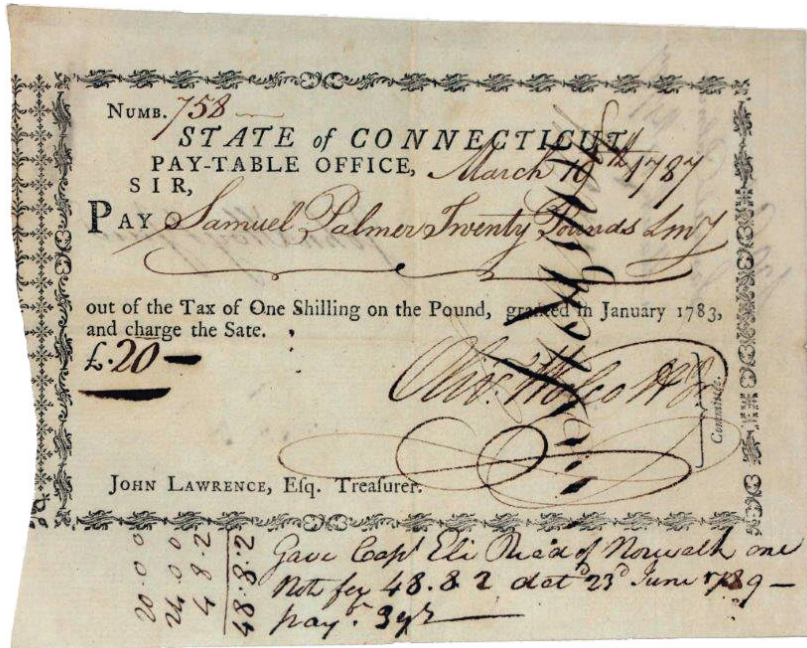 NUMB. 758
STATE of CONNECTICUT
PAY-TABLE OFFICE, March 19th 1787
SIR,
PAY Samuel Palmer Twenty Pounds Lmy
out of the Tax of One Shilling on the Pound, granted in January 1783,
and charge the Sate.
£.20
Olivr. Wolcott Jr
Committee.
JOHN LAWRENCE, Esq. Treasurer.
Registered
20.0.0
24.0.0
4.8.2
48.8.2
Gave Capt Eli Reed of Norwalk one
Note for 48.8.2 dat 23d June 1789 –
pay.